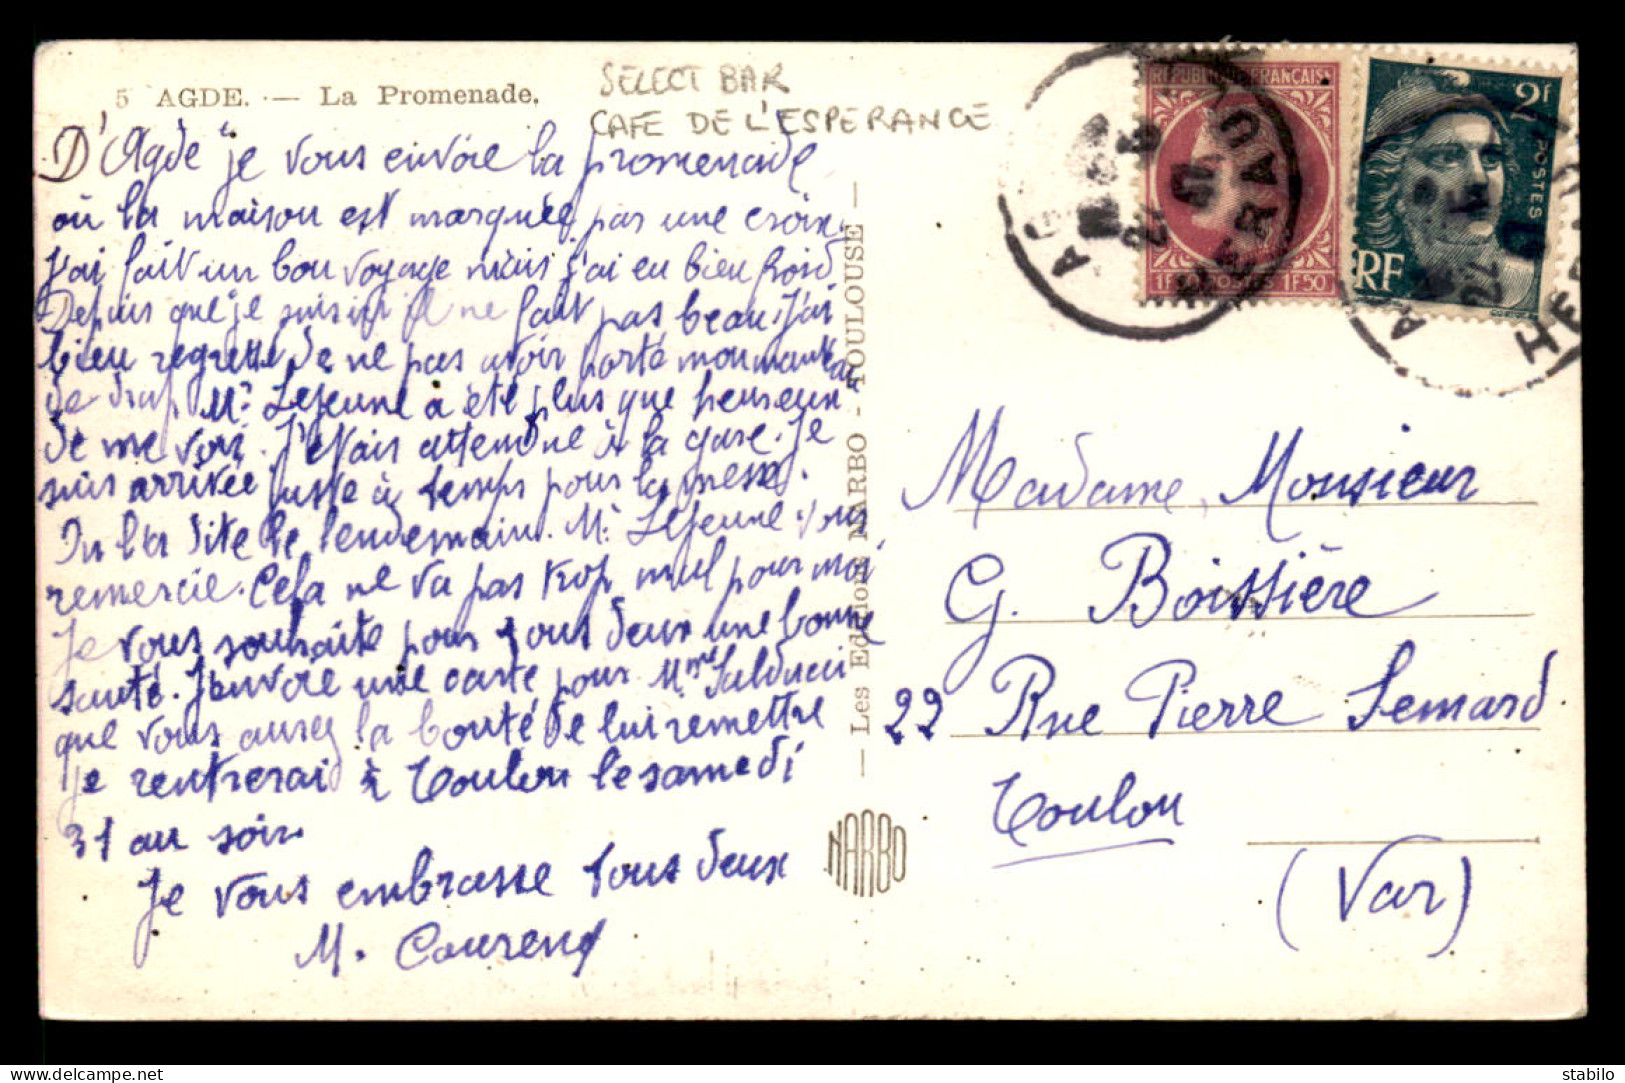 5 AGDE. — La Promenade.
SELECT BAR
CAFE DE L'ESPERANCE
D'Agde je vous envoie la promenade
où la maison est marquée par une croix.
J'ai fait un bon voyage mais j'ai eu bien froid
Depuis que je suis ici il ne fait pas beau. J'ai
bien regretté de ne pas avoir porté mon manteau
de drap. Mr Lejeune a été plus que heureux
de me voir. J'étais attendue à la gare. Je
suis arrivée juste à temps pour la messe.
On l'a dite le lendemain. Mr Lejeune vous
remercie. Cela ne va pas trop mal pour moi
Je vous souhaite pour tous deux une bonne
santé. J'envoie une carte pour Mme Salducci
que vous aurez la bonté de lui remettre
je rentrerai à Toulon le samedi
31 au soir.
Je vous embrasse tous deux
M. Courend
— Les Editions NARBO - TOULOUSE —
NARBO
REPUBLIQUE FRANÇAISE
1F50 POSTES 1F50
2f
POSTES
RF
AGDE
HERAULT
AGDE
HERAULT
Madame, Monsieur
G. Boissière
22 Rue Pierre Semard
Toulon
(Var)
delcampe.net
stabilo